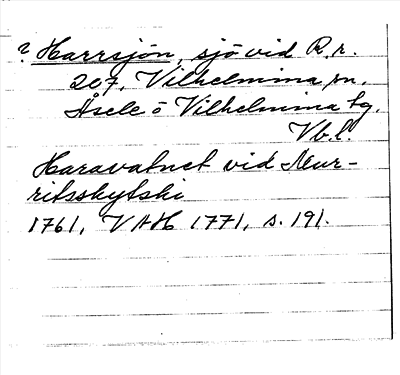 ? Harrsjön, sjö vid R. r.
207, Vilhelmina sn.
Åsele o Vilhelmina tg.
Vb. l.
Haravatnet vid Mur-
ritsskytski
1761, VAH 1771, s. 191.